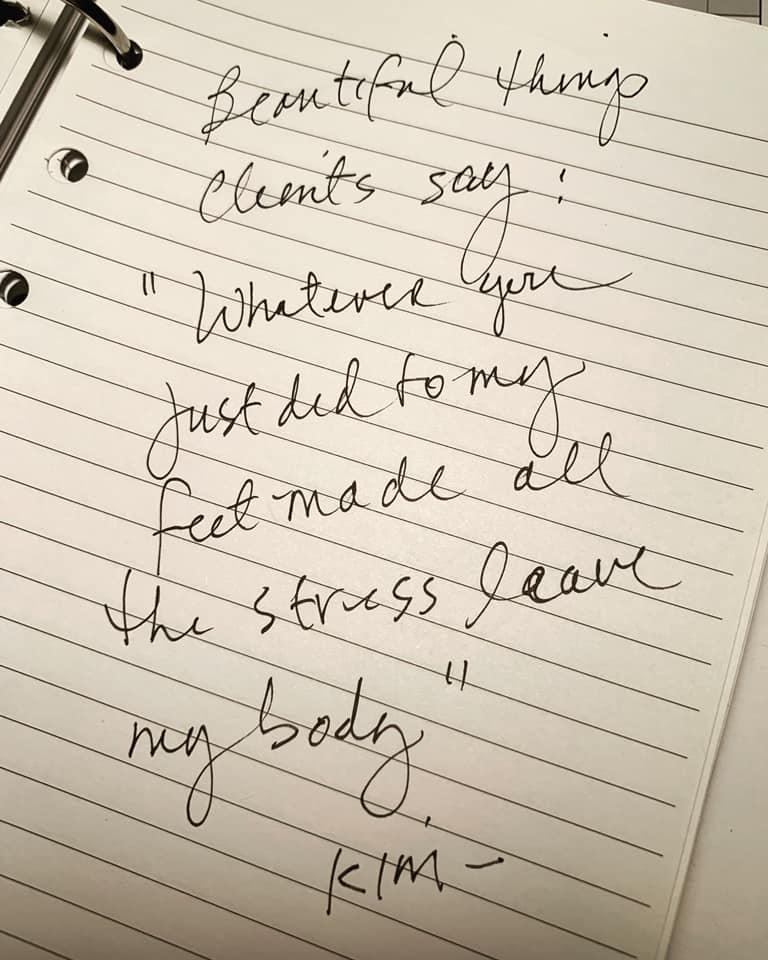 Beautiful things
clients say:
"Whatever you
just did to my
feet made all
the stress leave
my body."
KIM -